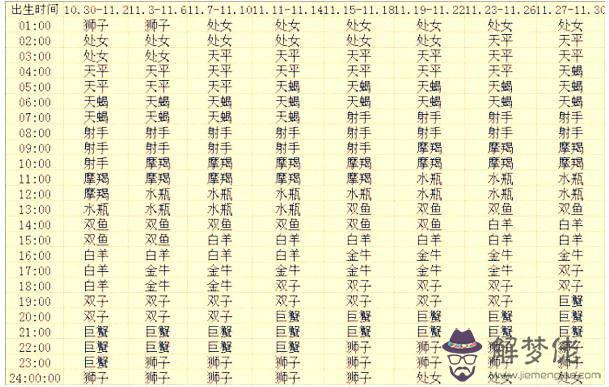 出生时间 10.30-11.2 11.3-11.6 11.7-11.10 11.11-11.14 11.15-11.18 11.19-11.22 11.23-11.26 11.27-11.30
01:00 狮子 狮子 处女 处女 处女 处女 处女 处女
02:00 处女 处女 处女 处女 处女 处女 天平 天平
03:00 处女 处女 天平 天平 天平 天平 天平 天平
04:00 天平 天平 天平 天平 天平 天平 天平 天蝎
05:00 天平 天平 天平 天蝎 天蝎 天蝎 天蝎 天蝎
06:00 天蝎 天蝎 天蝎 天蝎 天蝎 天蝎 天蝎 天蝎
07:00 天蝎 天蝎 天蝎 天蝎 射手 射手 射手 射手
08:00 射手 射手 射手 射手 射手 射手 射手 射手
09:00 射手 射手 射手 射手 射手 摩羯 摩羯 摩羯
10:00 射手 摩羯 摩羯 摩羯 摩羯 摩羯 摩羯 摩羯
11:00 摩羯 摩羯 摩羯 摩羯 摩羯 水瓶 水瓶 水瓶
12:00 摩羯 水瓶 水瓶 水瓶 水瓶 水瓶 水瓶 水瓶
13:00 水瓶 水瓶 水瓶 水瓶 双鱼 双鱼 双鱼 双鱼
14:00 双鱼 双鱼 双鱼 双鱼 双鱼 双鱼 白羊 白羊
15:00 双鱼 双鱼 白羊 白羊 白羊 白羊 白羊 白羊
16:00 白羊 白羊 白羊 白羊 金牛 金牛 金牛 金牛
17:00 白羊 金牛 金牛 金牛 金牛 金牛 金牛 双子
18:00 金牛 金牛 金牛 双子 双子 双子 双子 双子
19:00 双子 双子 双子 双子 双子 双子 双子 巨蟹
20:00 双子 双子 双子 巨蟹 巨蟹 巨蟹 巨蟹 巨蟹
21:00 巨蟹 巨蟹 巨蟹 巨蟹 巨蟹 巨蟹
22:00 巨蟹 巨蟹 巨蟹 巨蟹 狮子 狮子
23:00 巨蟹 狮子 狮子 狮子 狮子 狮子
24:00:00 狮子 狮子 狮子 狮子 处女 处女 处女
解梦佬
www.jiemenglao.com